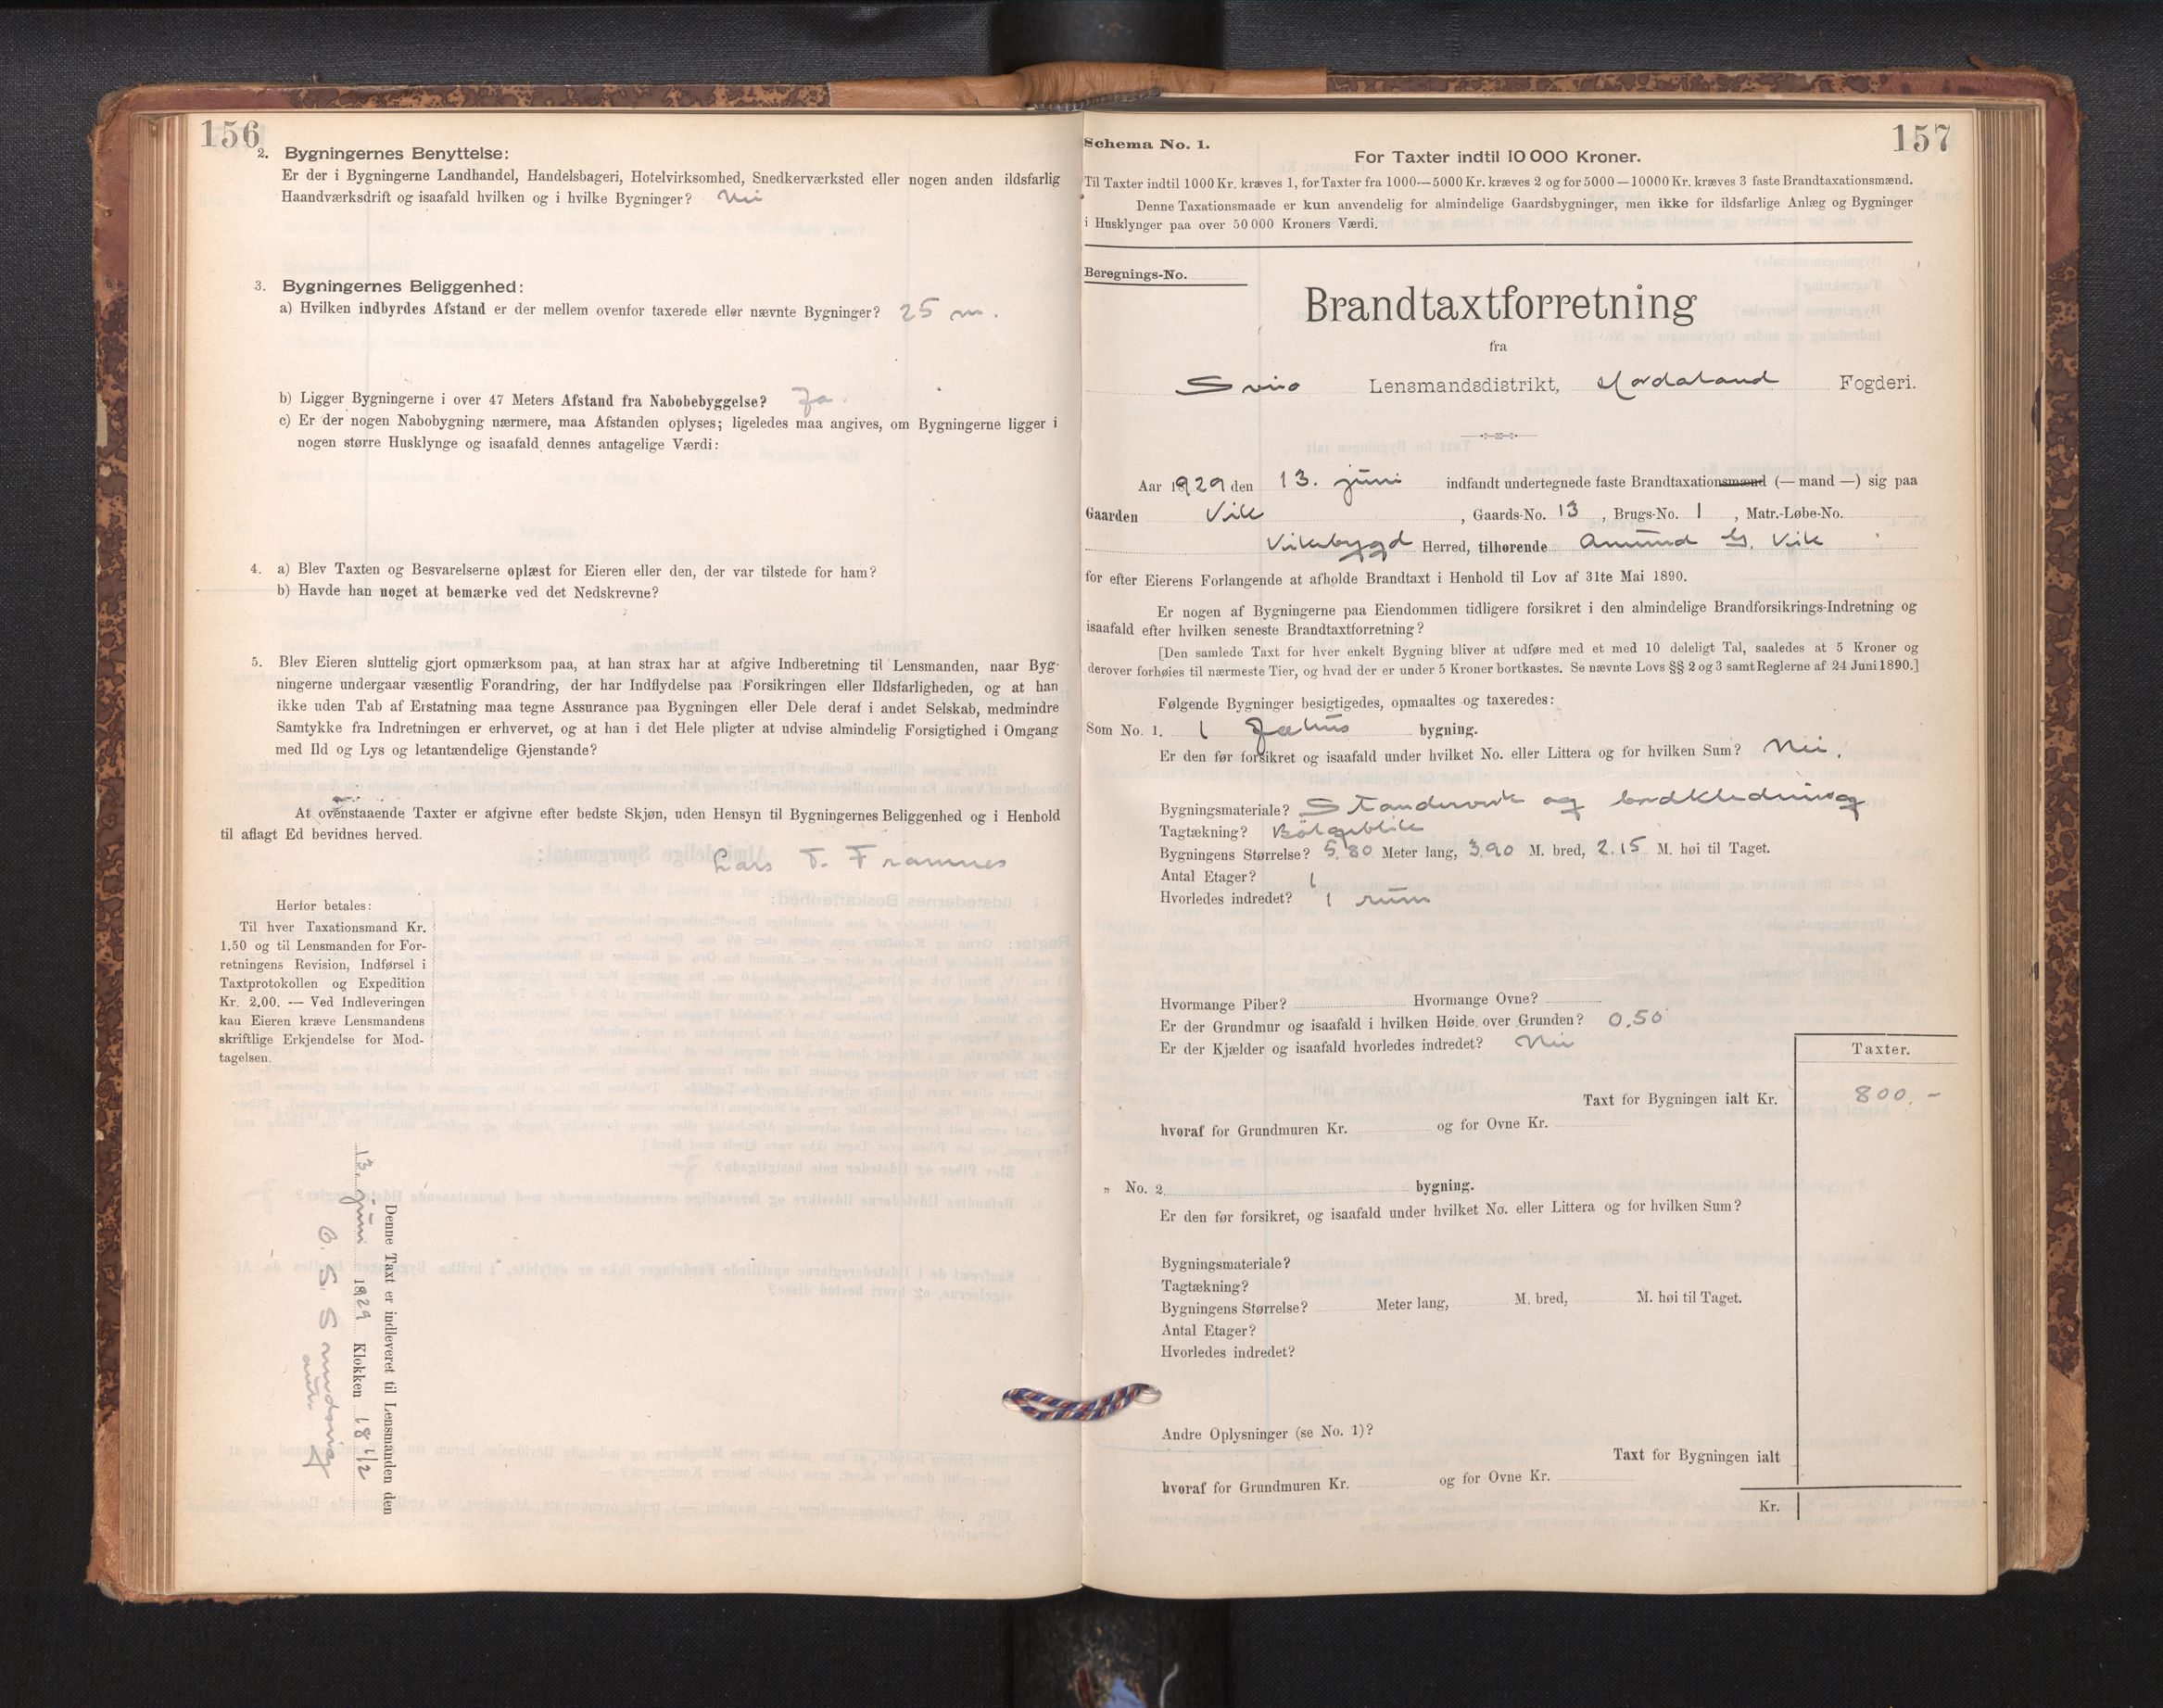 156
2. Bygningernes Benyttelse:
Er der i Bygningerne Landhandel, Handelsbageri, Hotelvirksomhed, Snedkerværksted eller nogen anden ildsfarlig
Haandværksdrift og isaafald hvilken og i hvilke Bygninger? Nei
3. Bygningernes Beliggenhed:
a) Hvilken indbyrdes Afstand er der mellem ovenfor taxerede eller nævnte Bygninger? 25 m.
b) Ligger Bygningerne i over 47 Meters Afstand fra Nabobebyggelse? Ja.
c) Er der nogen Nabobygning nærmere, maa Afstanden oplyses; ligeledes maa angives, om Bygningerne ligger i
nogen større Husklynge og isaafald dennes antagelige Værdi:
4. a) Blev Taxten og Besvarelserne oplæst for Eieren eller den, der var tilstede for ham?
b) Havde han noget at bemærke ved det Nedskrevne?
5. Blev Eieren sluttelig gjort opmærksom paa, at han strax har at afgive Indberetning til Lensmanden, naar Byg-
ningerne undergaar væsentlig Forandring, der har Indflydelse paa Forsikringen eller Ildsfarligheden, og at han
ikke uden Tab af Erstatning maa tegne Assurance paa Bygningen eller Dele deraf i andet Selskab, medmindre
Samtykke fra Indretningen er erhvervet, og at han i det Hele pligter at udvise almindelig Forsigtighed i Omgang
med Ild og Lys og letantændelige Gjenstande?
At ovenstaaende Taxter er afgivne efter bedste Skjøn, uden Hensyn til Bygningernes Beliggenhed og i Henhold
til aflagt Ed bevidnes herved.
Lars T. Framnes
Herfor betales:
Til hver Taxationsmand Kr.
1.50 og til Lensmanden for For-
retningens Revision, Indførsel i
Taxtprotokollen og Expedition
Kr. 2.00. — Ved Indleveringen
kan Eieren kræve Lensmandens
skriftlige Erkjendelse for Mod-
tagelsen.
Denne Taxt er indleveret til Lensmanden den
13. juni 1929 Klokken 18 1/2
O. S.
157
Schema No. 1.
For Taxter indtil 10 000 Kroner.
Til Taxter indtil 1000 Kr. kræves 1, for Taxter fra 1000—5000 Kr. kræves 2 og for 5000—10000 Kr. kræves 3 faste Brandtaxationsmænd.
Denne Taxationsmaade er kun anvendelig for almindelige Gaardsbygninger, men ikke for ildsfarlige Anlæg og Bygninger
i Husklynger paa over 50 000 Kroners Værdi.
Beregnings-No.
Brandtaxtforretning
fra
Sveio Lensmandsdistrikt, Hordaland Fogderi.
Aar 1929 den 13. juni indfandt undertegnede faste Brandtaxationsmænd (— mand —) sig paa
Gaarden Vik , Gaards-No. 13 , Brugs-No. 1 , Matr.-Løbe-No.
Vikebygd Herred, tilhørende Amund G. Vik
for efter Eierens Forlangende at afholde Brandtaxt i Henhold til Lov af 31te Mai 1890.
Er nogen af Bygningerne paa Eiendommen tidligere forsikret i den almindelige Brandforsikrings-Indretning og
isaafald efter hvilken seneste Brandtaxtforretning?
[Den samlede Taxt for hver enkelt Bygning bliver at udføre med et med 10 deleligt Tal, saaledes at 5 Kroner og
derover forhøies til nærmeste Tier, og hvad der er under 5 Kroner bortkastes. Se nævnte Lovs §§ 2 og 3 samt Reglerne af 24 Juni 1890.]
Følgende Bygninger besigtigedes, opmaaltes og taxeredes:
Som No. 1. 1 bygning.
Er den før forsikret og isaafald under hvilket No. eller Littera og for hvilken Sum? Nei.
Bygningsmateriale? Standerverk og bordkledning
Tagtækning? Bølgeblik
Bygningens Størrelse? 5.80 Meter lang, 3.90 M. bred, 2.15 M. høi til Taget.
Antal Etager? 1
Hvorledes indredet? 1 rum
Hvormange Piber? Hvormange Ovne?
Er der Grundmur og isaafald i hvilken Høide over Grunden? 0.50
Er der Kjælder og isaafald hvorledes indredet? Nei
Taxter.
Taxt for Bygningen ialt Kr. 800.-
hvoraf for Grundmuren Kr. og for Ovne Kr.
„ No. 2 bygning.
Er den før forsikret, og isaafald under hvilket No. eller Littera og for hvilken Sum?
Bygningsmateriale?
Tagtækning?
Bygningens Størrelse? Meter lang, M. bred, M. høi til Taget.
Antal Etager?
Hvorledes indredet?
Andre Oplysninger (se No. 1)?
Taxt for Bygningen ialt
hvoraf for Grundmuren Kr. og for Ovne Kr.
Kr.